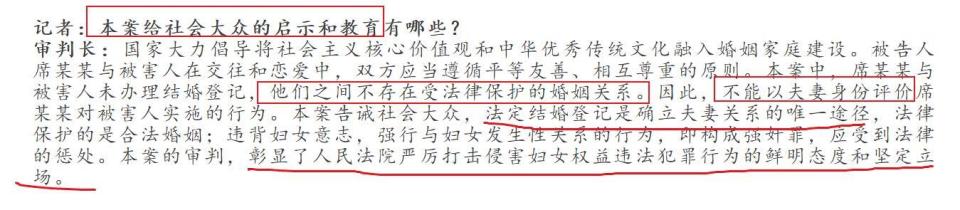 记者：本案给社会大众的启示和教育有哪些？
审判长：国家大力倡导将社会主义核心价值观和中华优秀传统文化融入婚姻家庭建设。被告人
席某某与被害人在交往和恋爱中，双方应当遵循平等友善、相互尊重的原则。本案中，席某某与
被害人未办理结婚登记，他们之间不存在受法律保护的婚姻关系。因此，不能以夫妻身份评价席
某某对被害人实施的行为。本案告诫社会大众，法定结婚登记是确立夫妻关系的唯一途径，法律
保护的是合法婚姻；违背妇女意志，强行与妇女发生性关系的行为，即构成强奸罪，应受到法律
的惩处。本案的审判，彰显了人民法院严厉打击侵害妇女权益违法犯罪行为的鲜明态度和坚定立
场。